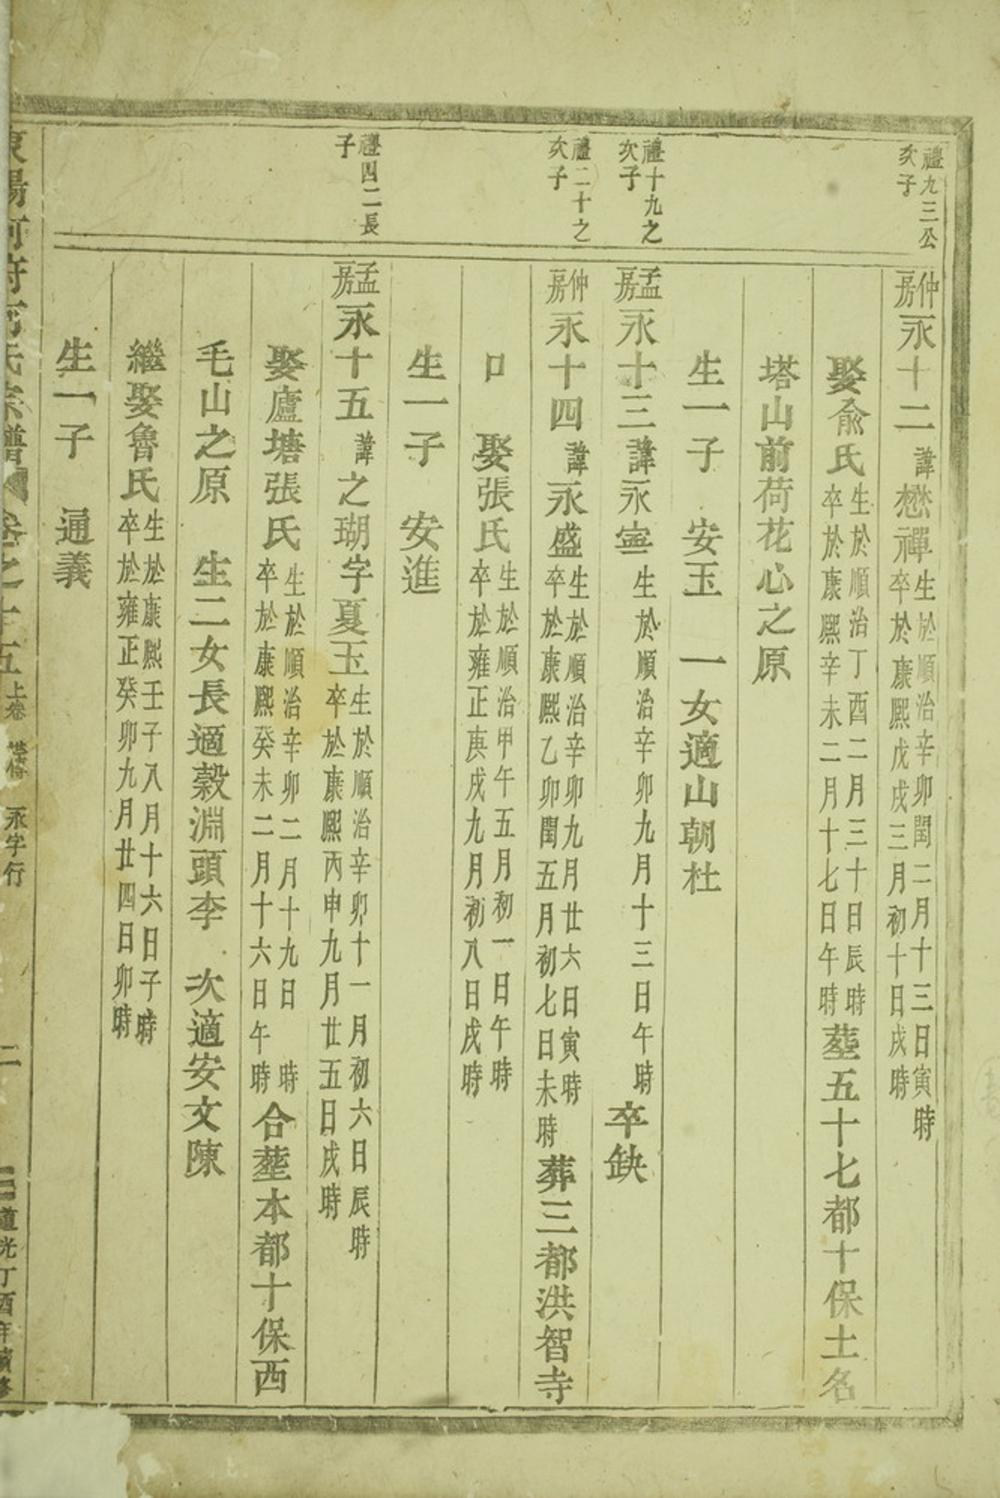 禮九三公
次子
仲房永十二諱懋禪生於順治辛卯閏二月十三日寅時
卒於康熙戊戌三月初十日戌時
娶俞氏生於順治丁酉二月三十日辰時
卒於康熙辛未二月十七日午時
塟五十七都十保土名
塔山前荷花心之原
生一子 安玉 一女適山朝杜
禮十九之
次子
孟房永十三諱永寍生於順治辛卯九月十三日午時 卒缺
禮二十之
次子
仲房永十四諱永盛生於順治辛卯九月廿六日寅時
卒於康熙乙卯閏五月初七日未時
葬三都洪智寺
口 娶張氏生於順治甲午五月初一日午時
卒於雍正庚戌九月初八日戌時
生一子 安進
禮四二長
子
孟房永十五諱之瑚字夏玉生於順治辛卯十一月初六日辰時
卒於康熙丙申九月廿五日戌時
娶廬塘張氏生於順治辛卯二月十九日 時
卒於康熙癸未二月十六日午時
合塟本都十保西
毛山之原 生二女長適穀淵頭李 次適安文陳
繼娶魯氏生於康熙壬子八月十六日子時
卒於雍正癸卯九月廿四日卯時
生一子 通義
東陽河府 氏宗譜 卷之十五上卷 永字行 二 道光丁酉年續修